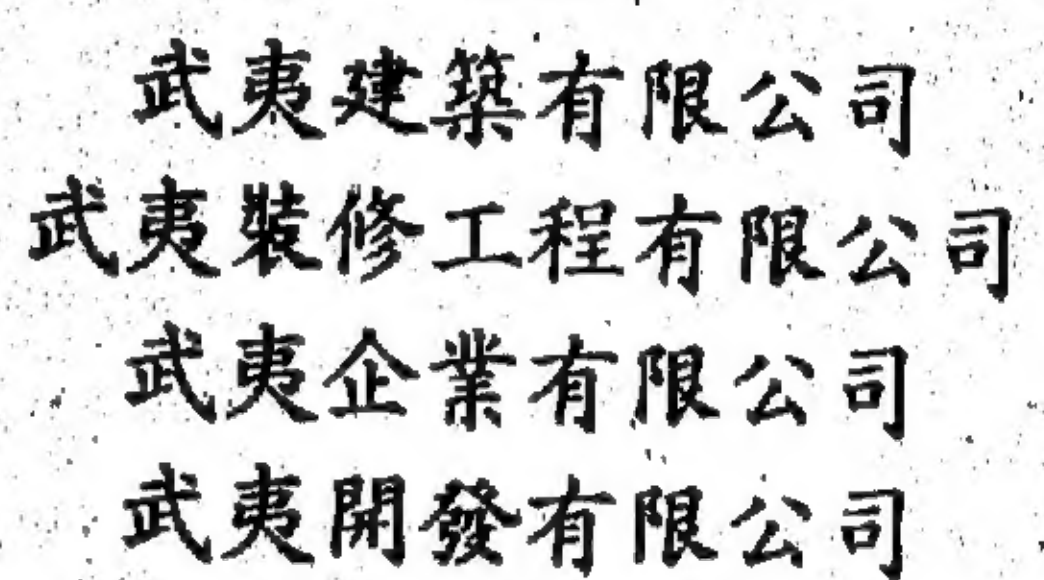 武夷建築有限公司
武夷裝修工程有限公司
武夷企業有限公司
武夷開發有限公司